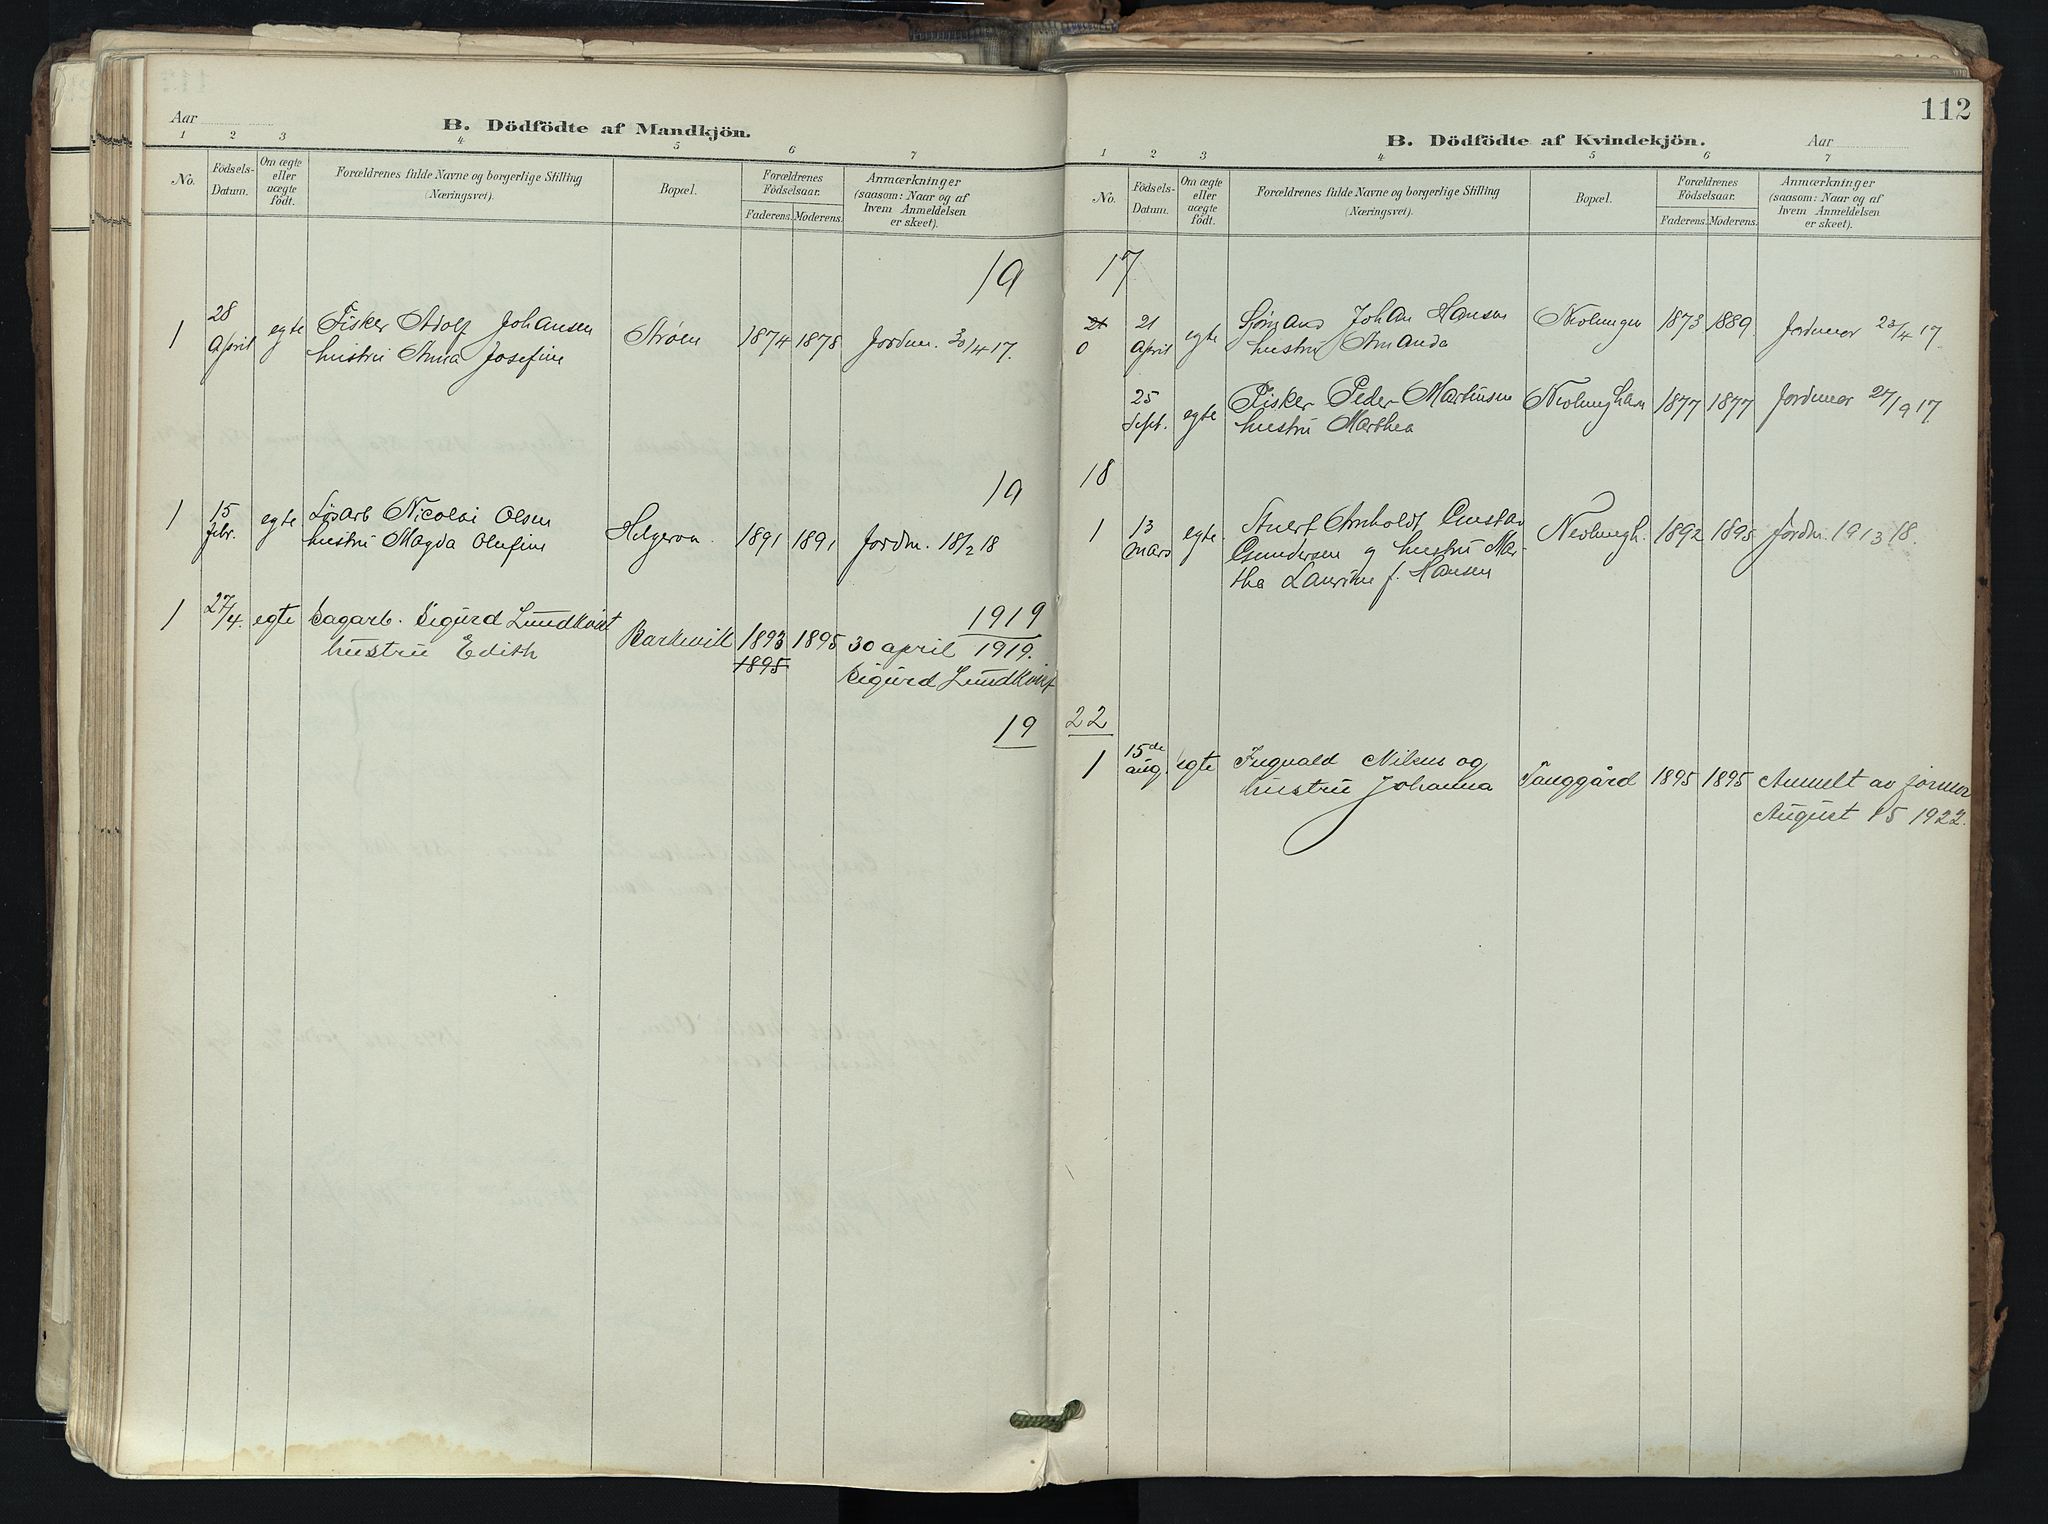 112
Aar
B. Dödfödte af Mandkjön.
1 2 3 4 5 6 7
No.
Födsels-Datum.
Om ægte eller uægte födt.
Forældrenes fulde Navne og borgerlige Stilling
(Næringsvei).
Bopæl.
Forældrenes Födselsaar.
Faderens. Moderens.
Anmærkninger
(saasom: Naar og af
hvem Anmeldelsen
er skeet).
19
1 28 April egte Fisker Adolf Johansen
hustru Anna Josefine
Strøen 1874 1878 Jordm. 30/4 17.
19
1 15 febr. egte Løsarb Nicolai Olsen
hustru Magda Olufine
Helgeroa 1891 1891 Jordm. 18/2 18
1919
1 27/4. egte Sagarb. Sigurd Lundkvist
hustru Edith
Barkevik 1893 1895 30 april 1919.
1895
Sigurd Lundkvist
19
B. Dödfödte af Kvindekjön.
Aar
1 2 3 4 5 6 7
No.
Födsels-Datum.
Om ægte eller uægte födt.
Forældrenes fulde Navne og borgerlige Stilling
(Næringsvei).
Bopæl.
Forældrenes Födselsaar.
Faderens. Moderens.
Anmærkninger
(saasom: Naar og af
hvem Anmeldelsen
er skeet).
17
21 April egte Sjømand Johan Hansen
0 hustru Amanda
1873 1889. Jordmor 23/4 17.
25 Sept. egte Fisker Peder Martinsen
hustru Marthea
Nevlunghavn 1877 1877 Jordmor 27/9 17
18
1 13 mars egte Stuert Arnholdt Gustav
Gundersen og hustru Mar-
tha Laurine f. Hansen
Nevlungh. 1892 1895 Jordm. 19 13 18.
22
1 15de aug. egte Ingvald Nilsen og
hustru Johanna
Tanggård 1895 1895 Anmelt av jormor
August 15 1922.